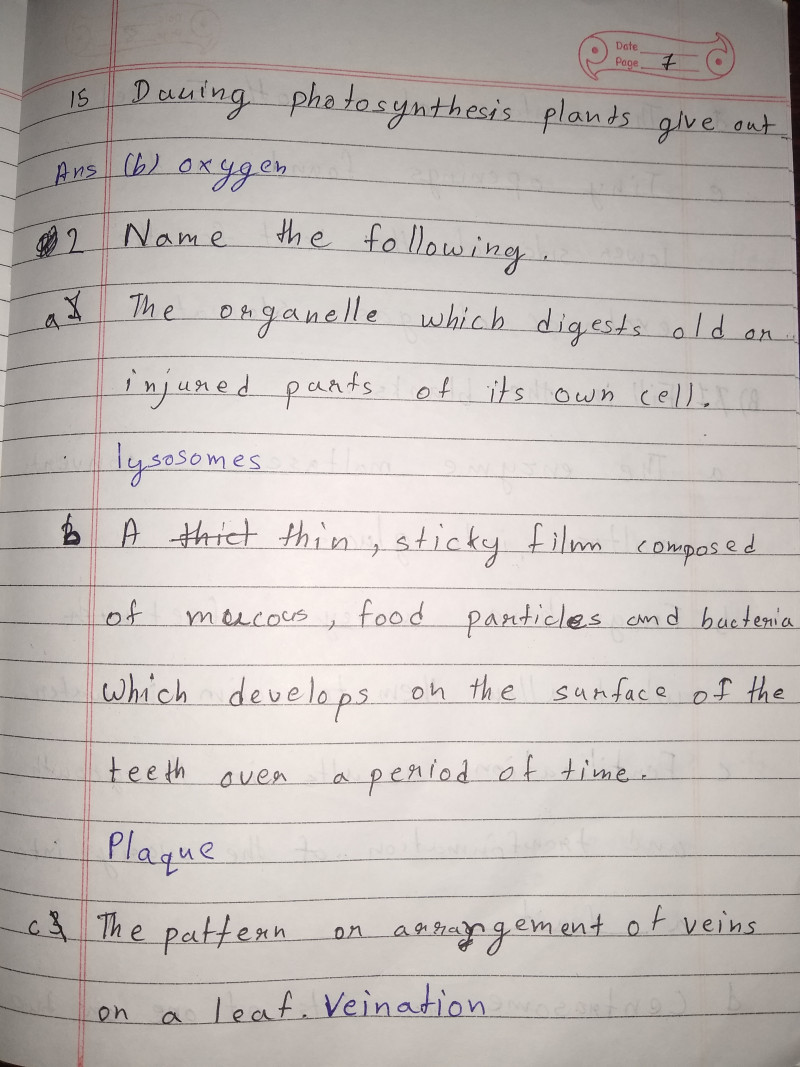 Date
Page 7
15 Dauing photosynthesis plants give out
Ans (b) oxygen
2 Name the following.
a The organelle which digests old or
injured parts of its own cell.
lysosomes
b A thict thin, sticky film composed
of mucous, food particles and bacteria
which develops on the surface of the
teeth over a period of time.
Plaque
c The pattern or arrangement of veins
on a leaf. Veination